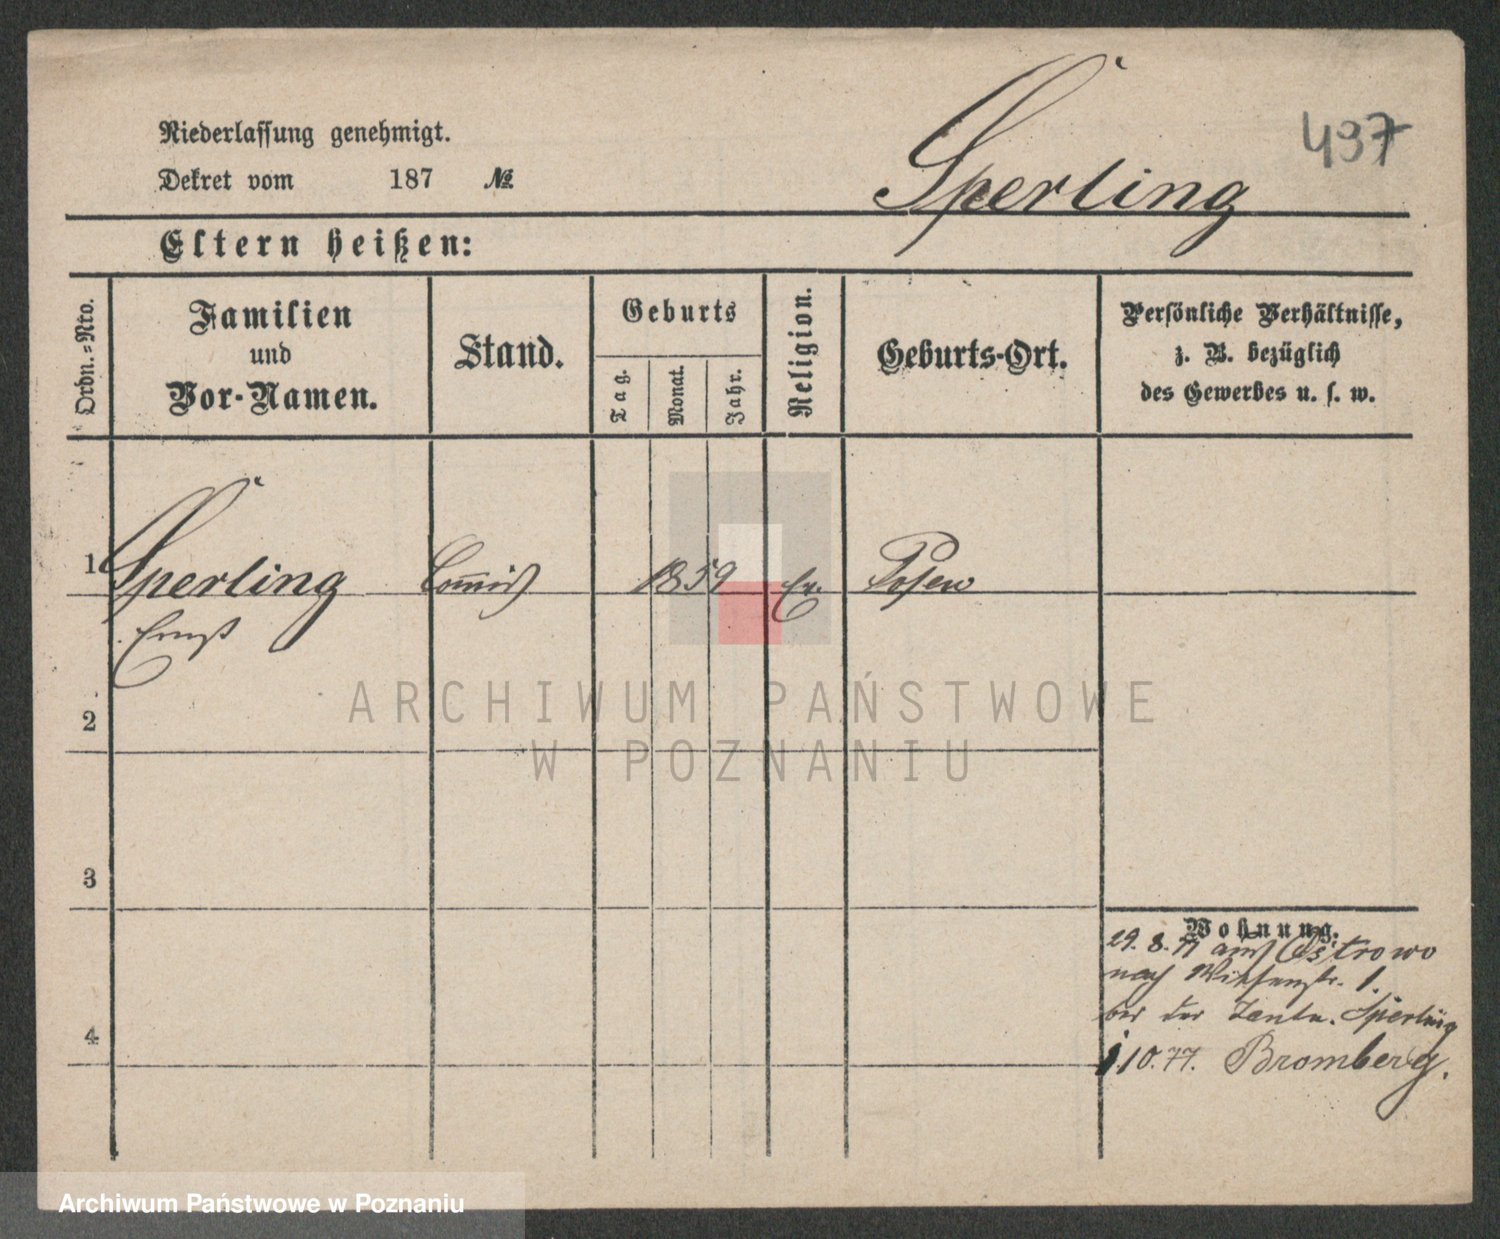 497
Sperling
Niederlassung genehmigt.
Dekret vom 187 №
Eltern heißen:
Ordn.=Nro.
Familien
und
Vor-Namen.
Stand.
Geburts
Tag.
Monat.
Jahr.
Religion.
Geburts-Ort.
Persönliche Verhältnisse,
z. B. bezüglich
des Gewerbes u. s. w.
1 Sperling Com̅is 1859 Ev. Posen
Ernst
2
3
4
Wohnung.
29. 8. 77 aus Ostrowo
nach 1.
bei der Tante. Sperling
1.10.77. Bromberg.
ARCHIWUM PAŃSTWOWE
W POZNANIU
Archiwum Państwowe w Poznaniu